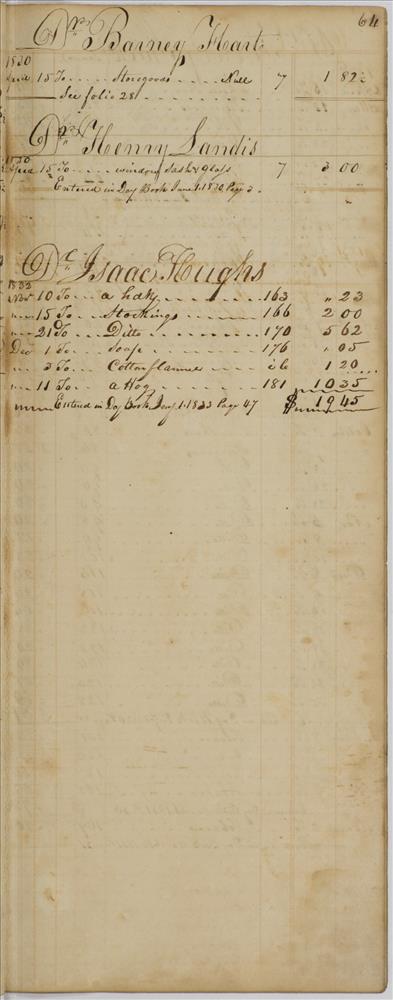 64
Dr. Barney Hart
1830
15 To Storegoods Null 7 1 82
See folio 28
Dr. Henry Landis
1830
15 To window Sash & Glass 7 3 00
Entered in Day Book June 1. 1830 Page 3.
Dr. Isaac Hughs
1832
Nov 10 To a hdkf 163 " 23
" 15 To Stockings 166 2 00
" 21 To Ditto 170 5 62
Dec 1 To Soap 176 " 05
" 3 To Cotton flannel 1 20
" 11 To a Hog 181 10 35
Entered in Day Book Jany 1. 1833 Page 47 $ 19 45